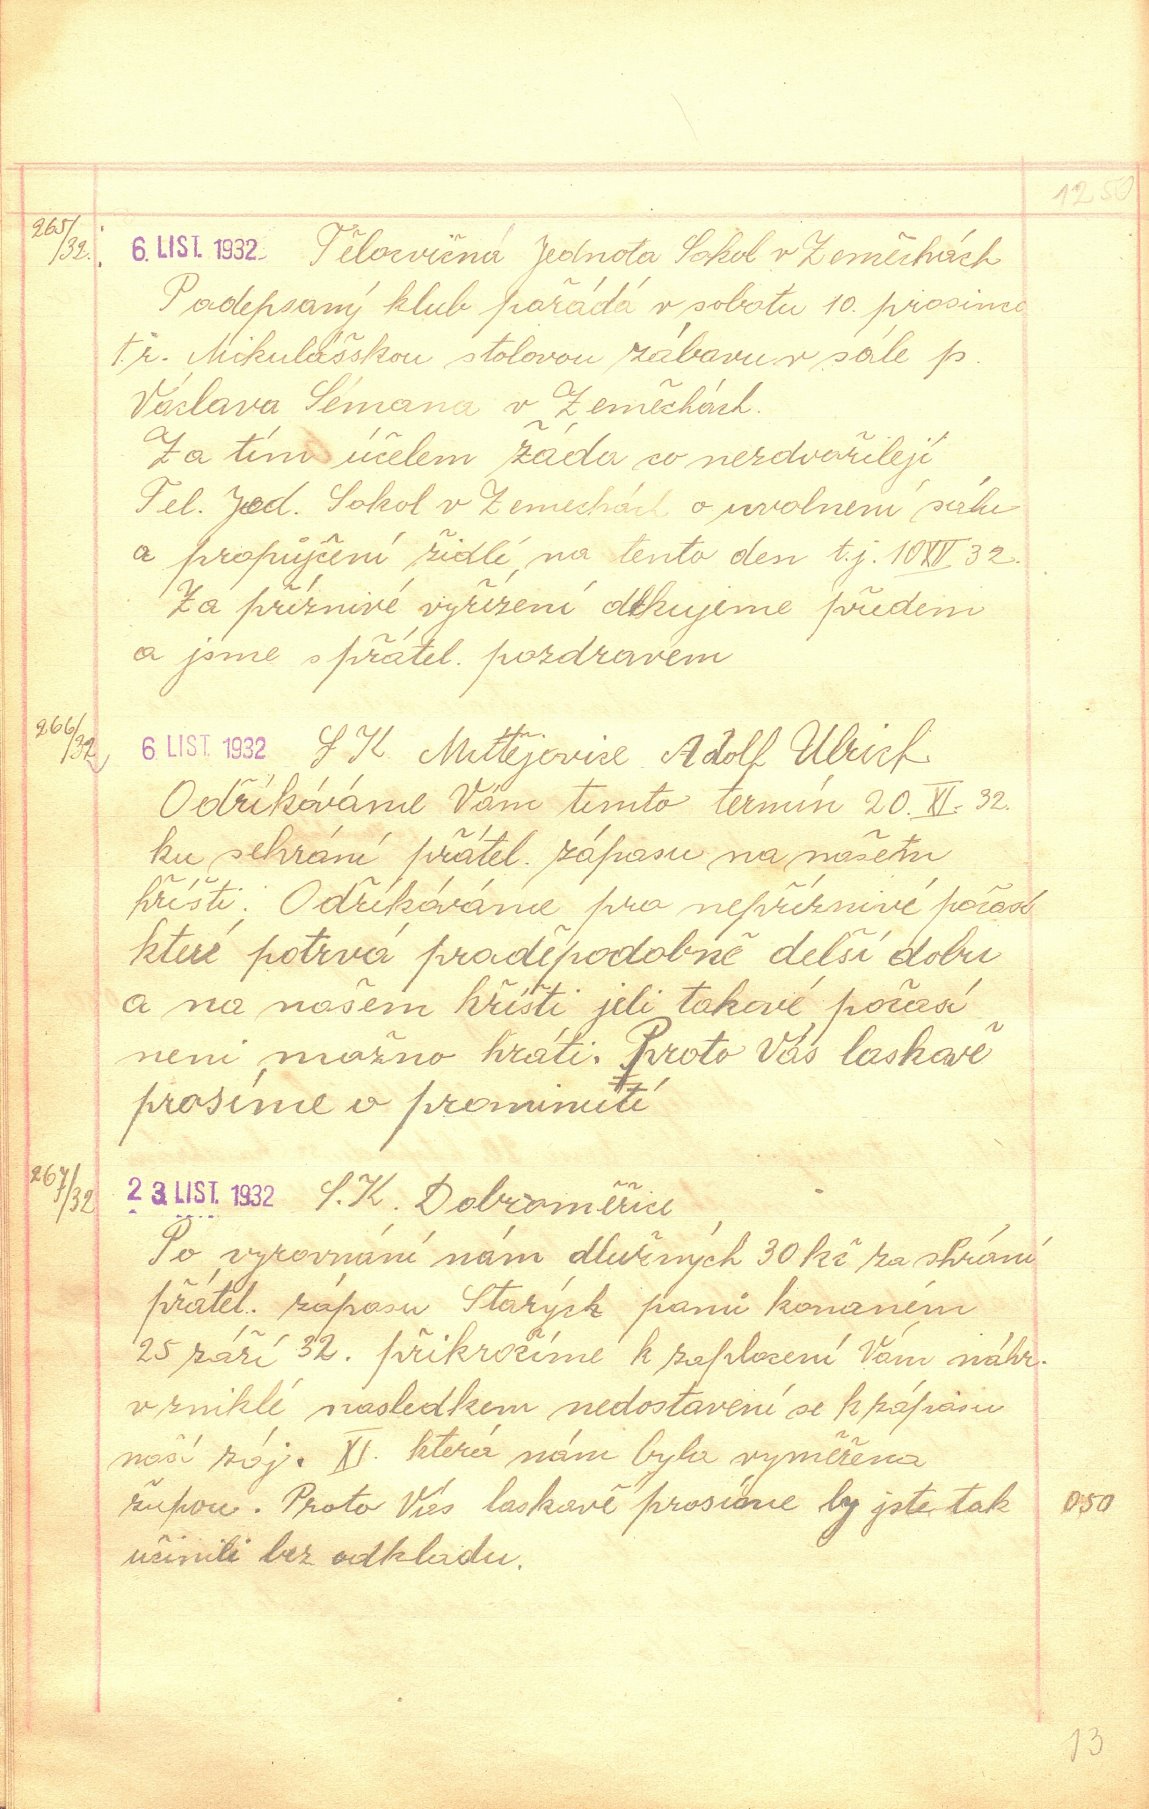 12 50
265/32. 6. LIST. 1932 Tělocvičná Jednota Sokol v Zeměchách
Podepsaný klub pořádá v sobotu 10. prosince
t.r. Mikulášskou stolovou zábavu v sále p.
Václava Sémana v Zeměchách.
Za tím účelem žáda co nezdvořileji
Tel. Jed. Sokol v Zemechách o uvolnení sálu
a propůjčení židlí na tento den t.j. 10 XII 32.
Za příznivé vyřízení děkujeme předem
a jsme s přátel. pozdravem
266/32 6 LIST. 1932 S K Mutějovice Adolf Ulrich
Odříkáváme Vám timto termín 20. XI. 32.
ku sehrání přátel. zápasu na našem
hřišti. Odříkáváme pro nepříznivé počasí
které potrvá praděpodobně delší dobu
a na našem hřišti jeli takové počasí
neni možno hráti. Proto Vás laskavě
prosíme o prominutí
267/32 23 LIST. 1932 S.K. Dobroměřice
Po vyrovnání nám dlužných 30 kč za shrání
přátel. zápasu Starých panů konaném
25 září 32. přikročíme k zaplacení Vám náhr.
vzniklé nasledkem nedostavení se k zápasu
naší záj. XI. která nám byla vyměřena
župou. Proto Vás laskavě prosíme by jste tak 0 50
učinili bez odkladu.
13